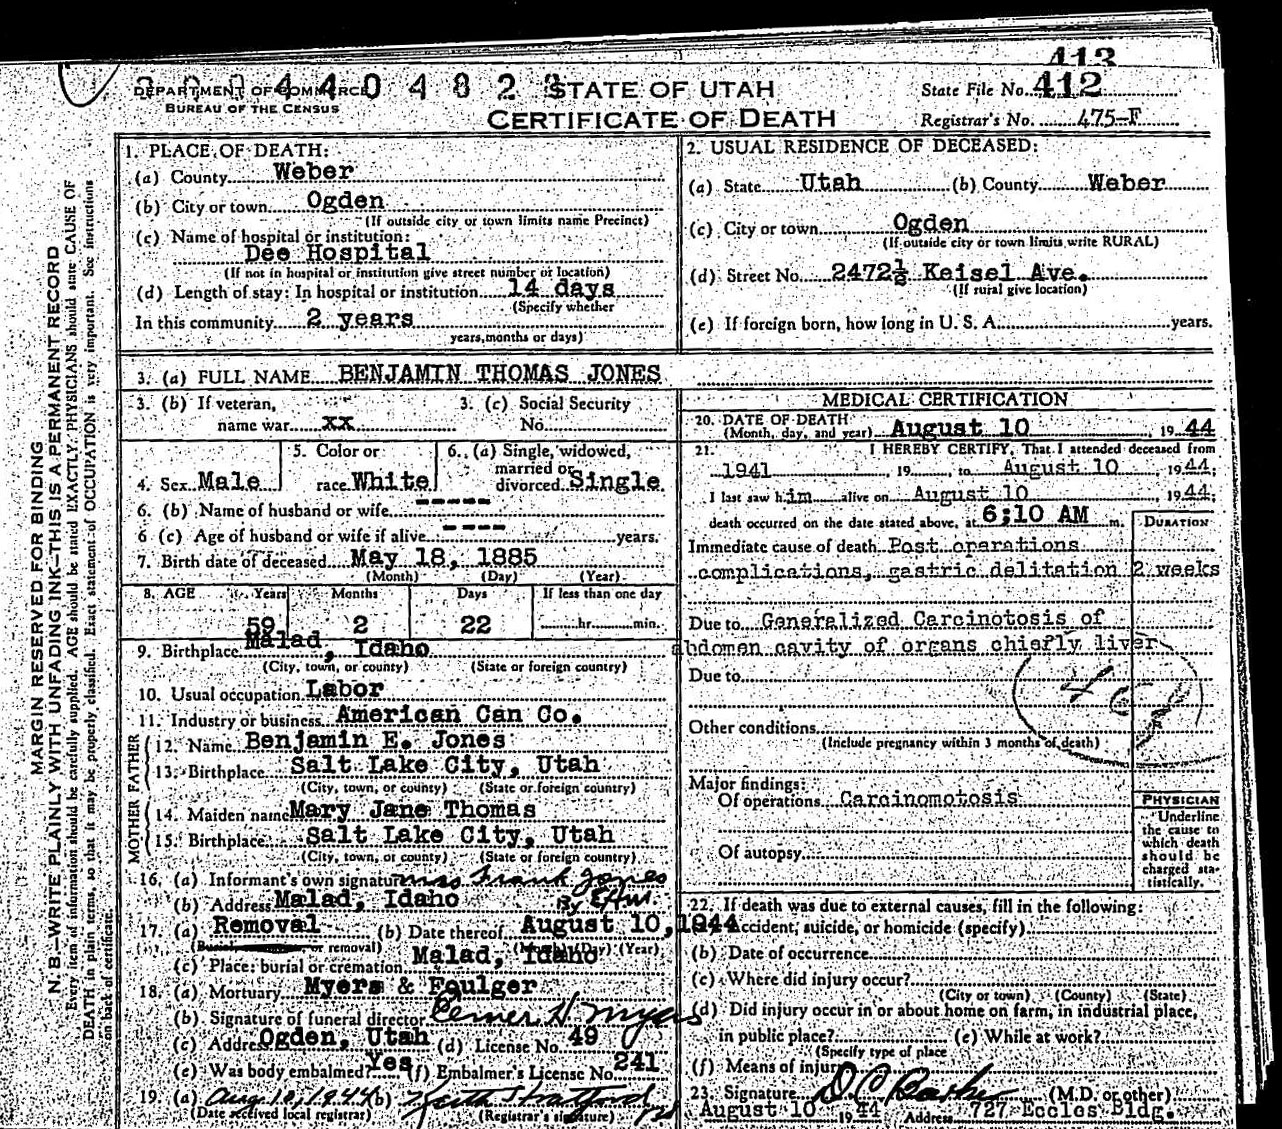 413
DEPARTMENT OF COMMERCE
BUREAU OF THE CENSUS
STATE OF UTAH
CERTIFICATE OF DEATH
State File No. 412
Registrar's No. 475-F
MARGIN RESERVED FOR BINDING
N. B.—WRITE PLAINLY WITH UNFADING INK—THIS IS A PERMANENT RECORD
Every item of information should be carefully supplied. AGE should be stated EXACTLY. PHYSICIANS should state CAUSE OF
DEATH in plain terms, so that it may be properly classified. Exact statement of OCCUPATION is very important. See instructions
on back of certificate.
1. PLACE OF DEATH:
(a) County Weber
(b) City or town Ogden
(If outside city or town limits name Precinct)
(c) Name of hospital or institution:
Dee Hospital
(If not in hospital or institution give street number or location)
(d) Length of stay: In hospital or institution 14 days
(Specify whether
In this community 2 years
years, months or days)
2. USUAL RESIDENCE OF DECEASED:
(a) State Utah (b) County Weber
(c) City or town Ogden
(If outside city or town limits write RURAL)
(d) Street No. 2472½ Keisel Ave.
(If rural give location)
(e) If foreign born, how long in U. S. A. years.
3. (a) FULL NAME BENJAMIN THOMAS JONES
3. (b) If veteran,
name war xx
3. (c) Social Security
No.
4. Sex Male
5. Color or
race White
6. (a) Single, widowed,
married or
divorced Single
6. (b) Name of husband or wife -----
6 (c) Age of husband or wife if alive ---- years.
7. Birth date of deceased May 18, 1885
(Month) (Day) (Year)
8. AGE Years Months Days If less than one day
59 2 22 hr. min.
9. Birthplace Malad, Idaho
(City, town, or county) (State or foreign country)
10. Usual occupation Labor
11. Industry or business American Can Co.
FATHER
12. Name Benjamin E. Jones
13. Birthplace Salt Lake City, Utah
(City, town, or county) (State or foreign country)
MOTHER
14. Maiden name Mary Jane Thomas
15. Birthplace Salt Lake City, Utah
(City, town, or county) (State or foreign country)
16. (a) Informant's own signature Mrs Frank Jones
(b) Address Malad, Idaho By
17. (a) Removal (b) Date thereof August 10, 1944
(Burial, or removal) (Month) (Day) (Year)
(c) Place: burial or cremation Malad, Idaho
18. (a) Mortuary Myers & Foulger
(b) Signature of funeral director Myers
(c) Address Ogden, Utah (d) License No. 49
(e) Was body embalmed? Yes (f) Embalmer's License No. 241
19. (a) Aug. 10, 1944 (b) Keith Stratford
(Date received local registrar) (Registrar's signature)
MEDICAL CERTIFICATION
20. DATE OF DEATH
(Month, day, and year) August 10 19 44
21. I HEREBY CERTIFY, That I attended deceased from
1941 19 to August 10 1944;
I last saw him alive on August 10 1944;
death occurred on the date stated above, at 6:10 AM m.
DURATION
Immediate cause of death Post operations
complications, gastric delitation 2 weeks
Due to Generalized Carcinotosis of
abdomen cavity of organs chiefly liver
Due to
Other conditions
(Include pregnancy within 3 months of death)
Major findings:
Of operations Carcinomotosis
Of autopsy
PHYSICIAN
Underline
the cause to
which death
should be
charged sta-
tistically.
22. If death was due to external causes, fill in the following:
Accident, suicide, or homicide (specify)
(b) Date of occurrence
(c) Where did injury occur?
(City or town) (County) (State)
(d) Did injury occur in or about home on farm, in industrial place,
in public place? (e) While at work?
(Specify type of place
(f) Means of injury
23. Signature (M.D. or other)
August 10 19 44 Address 727 Eccles Bldg.